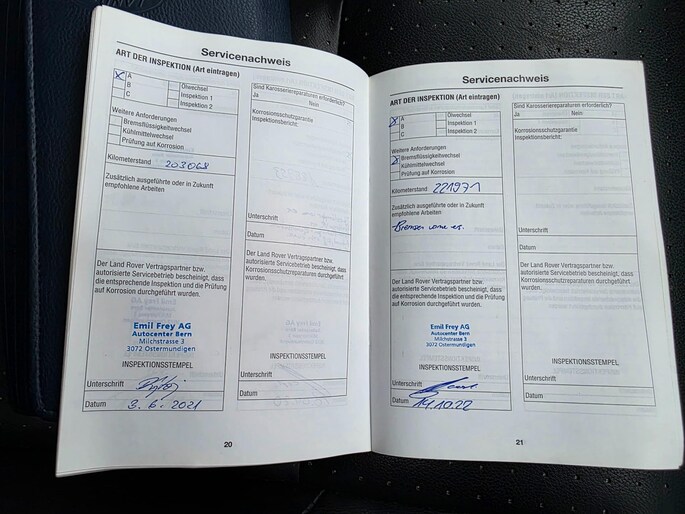 Servicenachweis
ART DER INSPEKTION (Art eintragen)
A
B
C
Ölwechsel
Inspektion 1
Inspektion 2
Weitere Anforderungen
Bremsflüssigkeitwechsel
Kühlmittelwechsel
Prüfung auf Korrosion
Kilometerstand 203068
Zusätzlich ausgeführte oder in Zukunft
empfohlene Arbeiten
Der Land Rover Vertragspartner bzw.
autorisierte Servicebetrieb bescheinigt, dass
die entsprechende Inspektion und die Prüfung
auf Korrosion durchgeführt wurden.
Emil Frey AG
Autocenter Bern
Milchstrasse 3
3072 Ostermundigen
INSPEKTIONSSTEMPEL
Unterschrift
Datum 3.6.2021
Sind Karosseriereparaturen erforderlich?
Ja Nein
Korrosionsschutzgarantie
Inspektionsbericht:
Unterschrift
Datum
Der Land Rover Vertragspartner bzw.
autorisierte Servicebetrieb bescheinigt, dass
Korrosionsschutzreparaturen durchgeführt
wurden.
INSPEKTIONSSTEMPEL
Unterschrift
Datum
20
Servicenachweis
ART DER INSPEKTION (Art eintragen)
A
B
C
Ölwechsel
Inspektion 1
Inspektion 2
Weitere Anforderungen
Bremsflüssigkeitwechsel
Kühlmittelwechsel
Prüfung auf Korrosion
Kilometerstand 221971
Zusätzlich ausgeführte oder in Zukunft
empfohlene Arbeiten
Bremsen vorne
Der Land Rover Vertragspartner bzw.
autorisierte Servicebetrieb bescheinigt, dass
die entsprechende Inspektion und die Prüfung
auf Korrosion durchgeführt wurden.
Emil Frey AG
Autocenter Bern
Milchstrasse 3
3072 Ostermundigen
INSPEKTIONSSTEMPEL
Unterschrift
Datum 19.10.22
Sind Karosseriereparaturen erforderlich?
Ja Nein
Korrosionsschutzgarantie
Inspektionsbericht:
Unterschrift
Datum
Der Land Rover Vertragspartner bzw.
autorisierte Servicebetrieb bescheinigt, dass
Korrosionsschutzreparaturen durchgeführt
wurden.
INSPEKTIONSSTEMPEL
Unterschrift
Datum
21